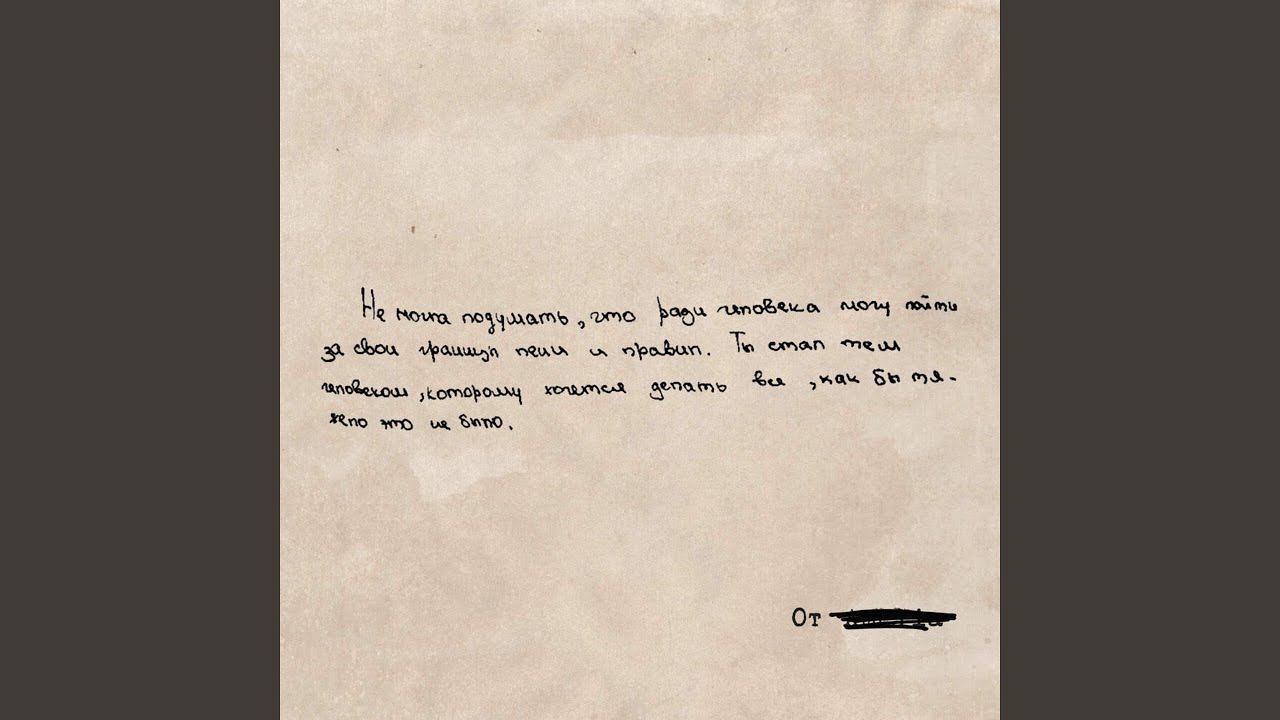 Не могла подумать, что ради человека могу пойти
за свои границы лени и правил. Ты стал тем
человеком, которому хочется делать все, как бы тя-
жело это не было.
От